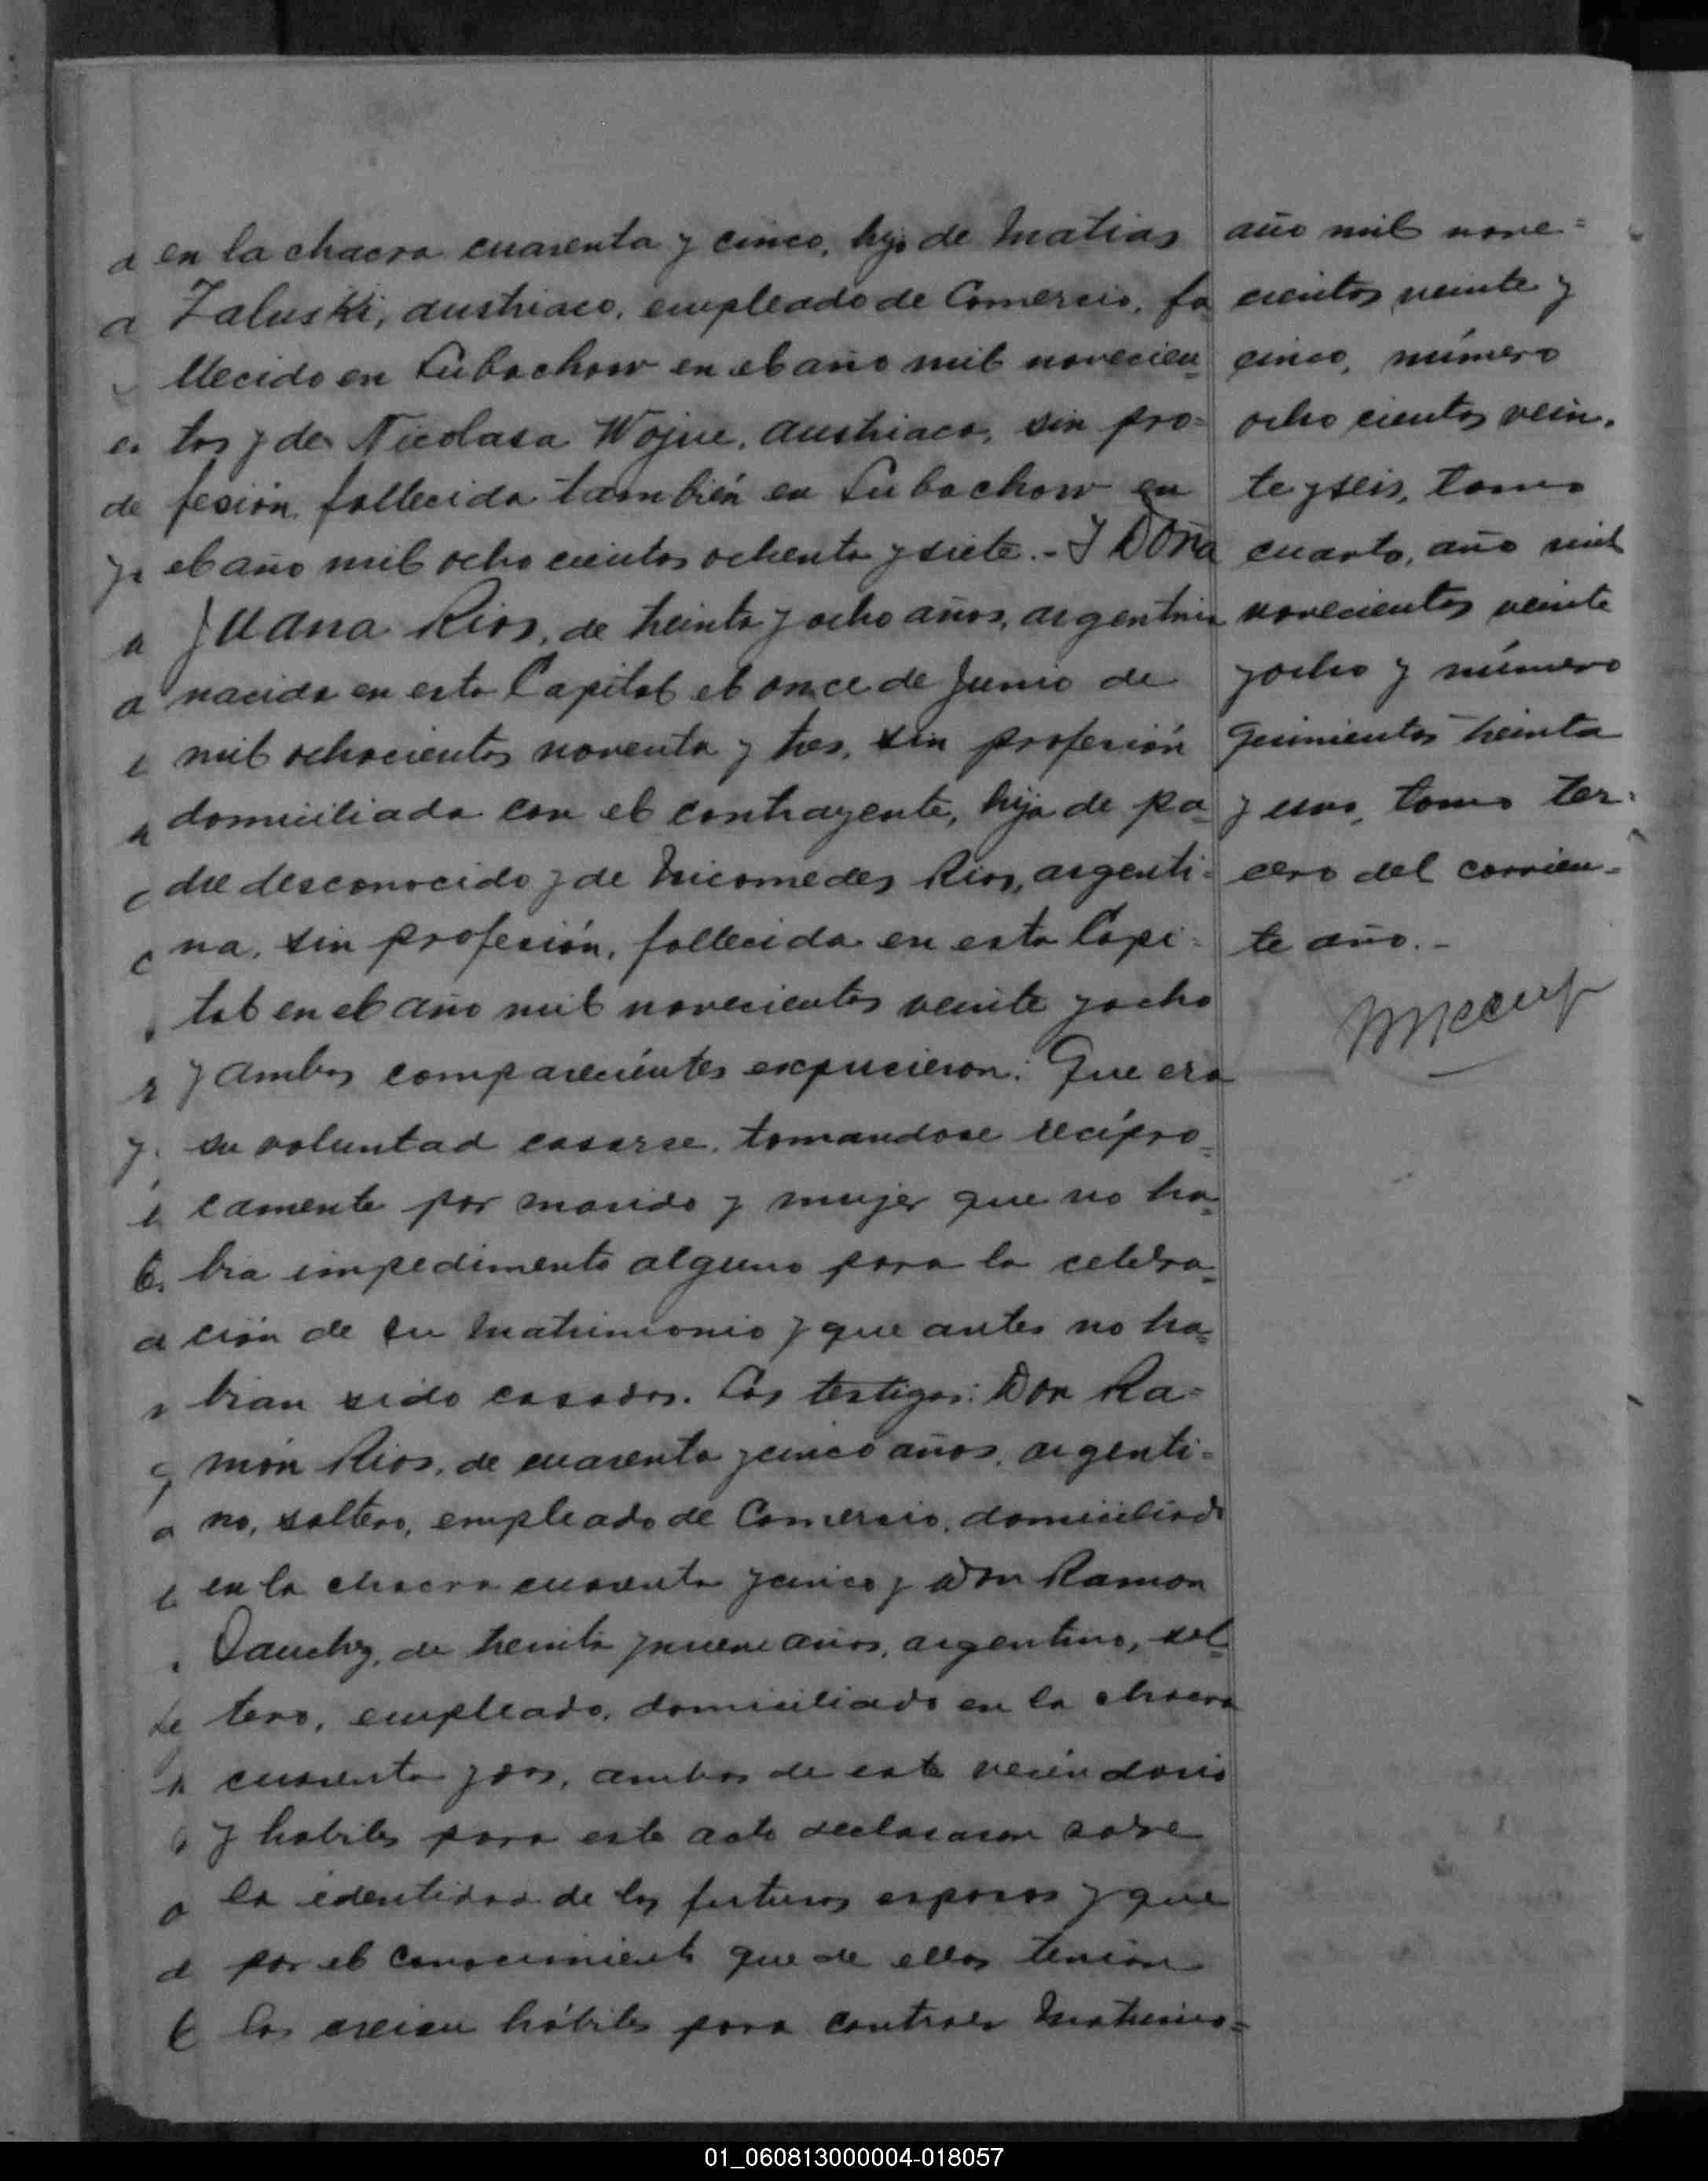 en la chacra cuarenta y cinco, hijo de Matias
Zaluski, austriaco, empleado de Comercio, fa
llecido en Lubachow en el año mil novecien
tos y de Nicolasa Wojne, austriaca, sin pro=
fesión, fallecida también en Lubachow en
el año mil ochocientos ochenta y siete.- Y Doña
Juana Rios, de treinta y ocho años, argentina
nacida en esta Capital el once de Junio de
mil ochocientos noventa y tres, sin profesión
domiciliada con el contrayente, hija de pa
dre desconocido y de Nicomedes Rios, argenti=
na, sin profesión, fallecida en esta Capi=
tal en el año mil novecientos veinte y ocho
y ambos comparecientes expucieron: Que era
su voluntad casarse, tomandose recípro
camente por marido y mujer que no ha
bia impedimento alguno para la celebra
ción de su matrimonio y que antes no ha
bian sido casados. Los testigos: Don Ra=
món Rios, de cuarenta y cinco años, argenti=
no, soltero, empleado de Comercio, domiciliado
en la chacra cuarenta y cinco y Don Ramon
Sanchez, de treinta y nueve años, argentino, sol
tero, empleado, domiciliado en la chacra
cuarenta y dos, ambos de este vecindario
y habiles para este acto declararon sobre
la identidad de los futuros esposos y que
por el conocimiento que de ellos tenian
los creian hábiles para contraer matrimo=
año mil nove=
cientos veinte y
cinco, número
ocho cientos vein.
te y seis, tomo
cuarto, año mil
novecientos veinte
y ocho y número
quinientos treinta
y uno, tomo ter=
cero del corrien=
te año.-
01_060813000004-018057